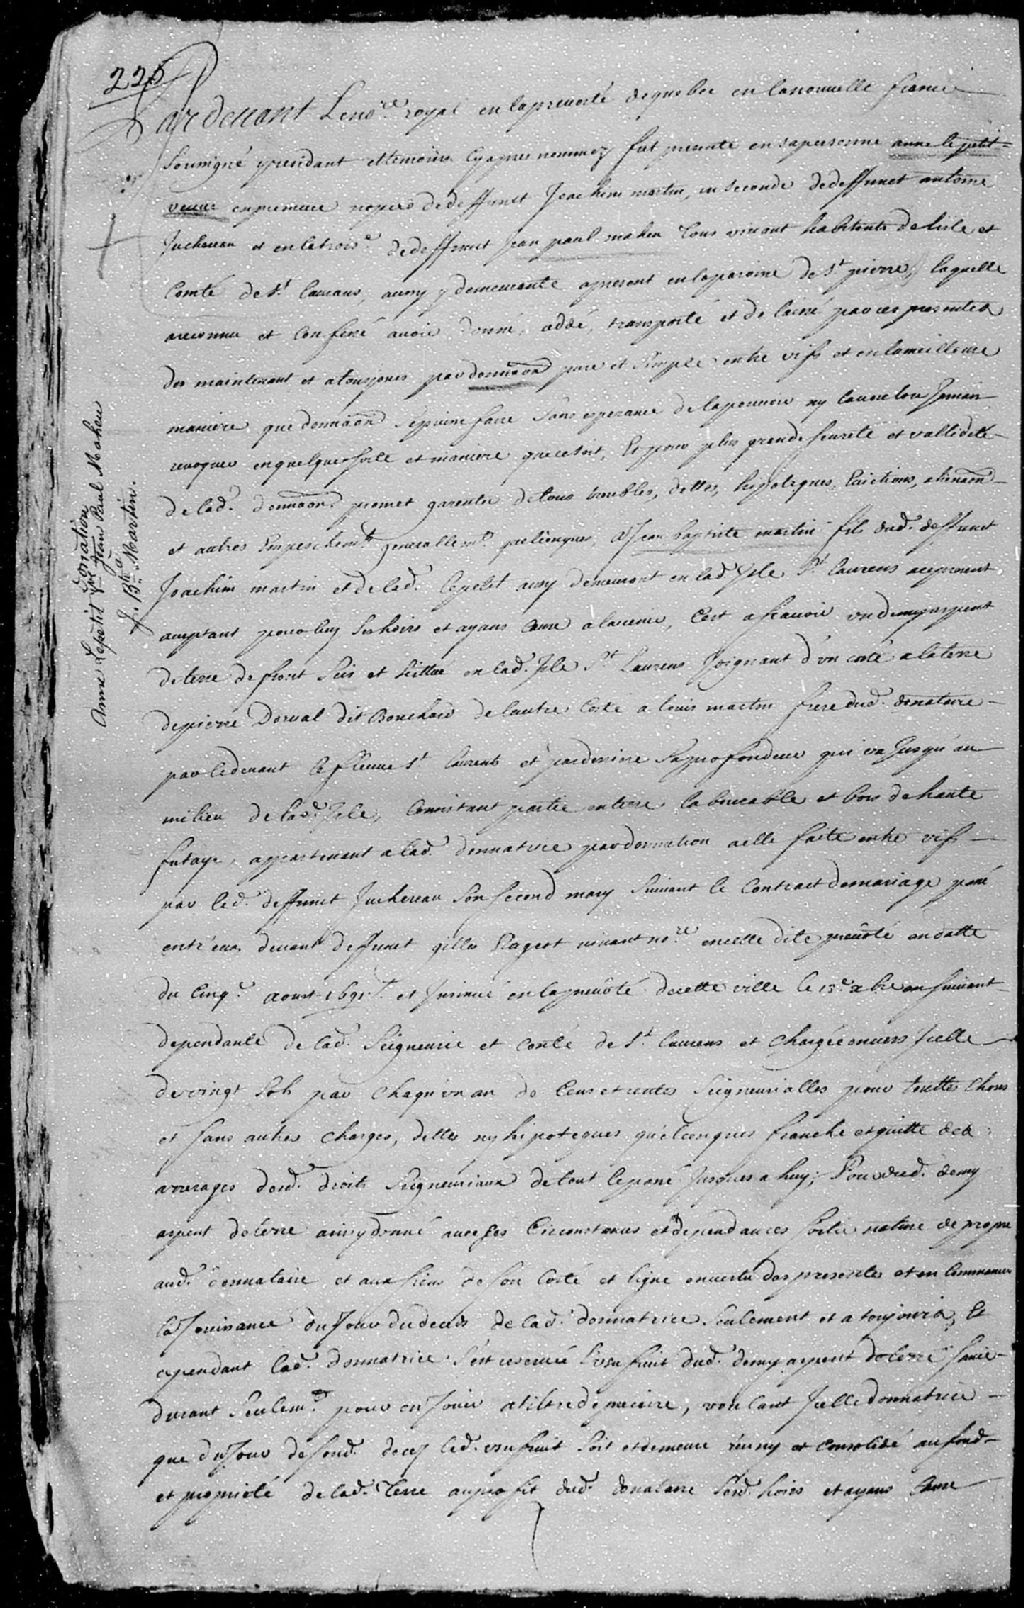 226
Pardevant Le no.re royal en la prevosté de quebec en la nouvelle france
Soussigné y residant et temoins cy apres nommez fut presente en sa personne anne le petit
veuve en premiere nopces de deffunct Joachim martin, en seconde de deffunct antoine
Juchereau et en la trois.e de deffunct jean paul maheu tous vivant habitants de lisle et
Comté de s.t Laurans, aussy y demeurante a present en la paroisse de s.t pierre, laquelle
a reconnu et confessé avoir donné, cédé, transporté et delaissé par ces presentes
des maintenant et a tousjours par donnaôn pure et simple entre vifs et en la meilleure
maniere que donnaôn se puisse faire sans esperance de la pouvoir ny vouloir jamais
revoquer en quelque sorte et maniere que ce soit, Et pour plus grande seureté et validité
de lad. donnaôn promet garentir de tous troubles, dettes, hypoteques, Evictions, alienaôn
et autres Empeschem.ts generallem.t quelconques, a Jean baptiste martin fils dud. deffunct
Joachim martin et de lad. Lepetit aussy demeurant en lad. Isle S.t Laurens a ce present
acceptant pour luy ses hoirs et ayans Cause a lavenir, Cest a scavoir un demy arpent
de terre de front Sis et scittué en lad. Isle S.t Laurens Joignant d'un costé a la terre
de pierre Dorval dit Bouchard de lautre Costé a louis martin frere dud. donataire
par le devant le fleuve s.t Laurent et par derriere sa profondeur qui va jusqu'au
milieu de lad. Isle, Consistant partie en terre labourable et bois de haute
futaye, appartenant a lad. donnatrice par donnation a elle faite entre vifs
par led. deffunct Juchereau son second mary suivant le Contract de mariage passé
entr'eux devant deffunct gilles Rageot vivant no.re en cette dite prevosté en datte
du cinq.e aoust 1691 et Insinué en la prevôté de cette ville le 13.e xbre en suivant
dependante de lad. Seigneurie et Conté de S.t Laurens et chargée envers Icelle
de vingt sols par chaqu'un an de Cens et rentes Seigneurialles pour toutte chose
et sans autres charges, dettes ny hipoteques quelconques franche et quitte des
arrerages desd. droits Seigneuriaux de tout le passé jusques a huy; Pour dud. demy
arpent de terre ainsy donné avec ses Circonstances et dependances sortir nature de propre
aud. donnataire et aux siens de son Costé et ligne en vertu des presentes et en Commencer
la Jouissance du Jour du decès de lad. donnatrice seulement et a toujours, Et
cependant lad. donnatrice s'est reservée L'usufruit dud. demy arpent de terre sa vie
durant Seulem.t pour en Jouir a tiltre de precaire, voulant Icelle donnatrice
que du Jour de sond. decez led. usufruit soit et demeure reuny et consolidé au fond
et proprieté de lad. Terre au profit dud. donataire sesd. hoirs et ayans Cause
Donation
Anne Lepetit V.e Jean Paul Maheu
a
J. B.te Martin.